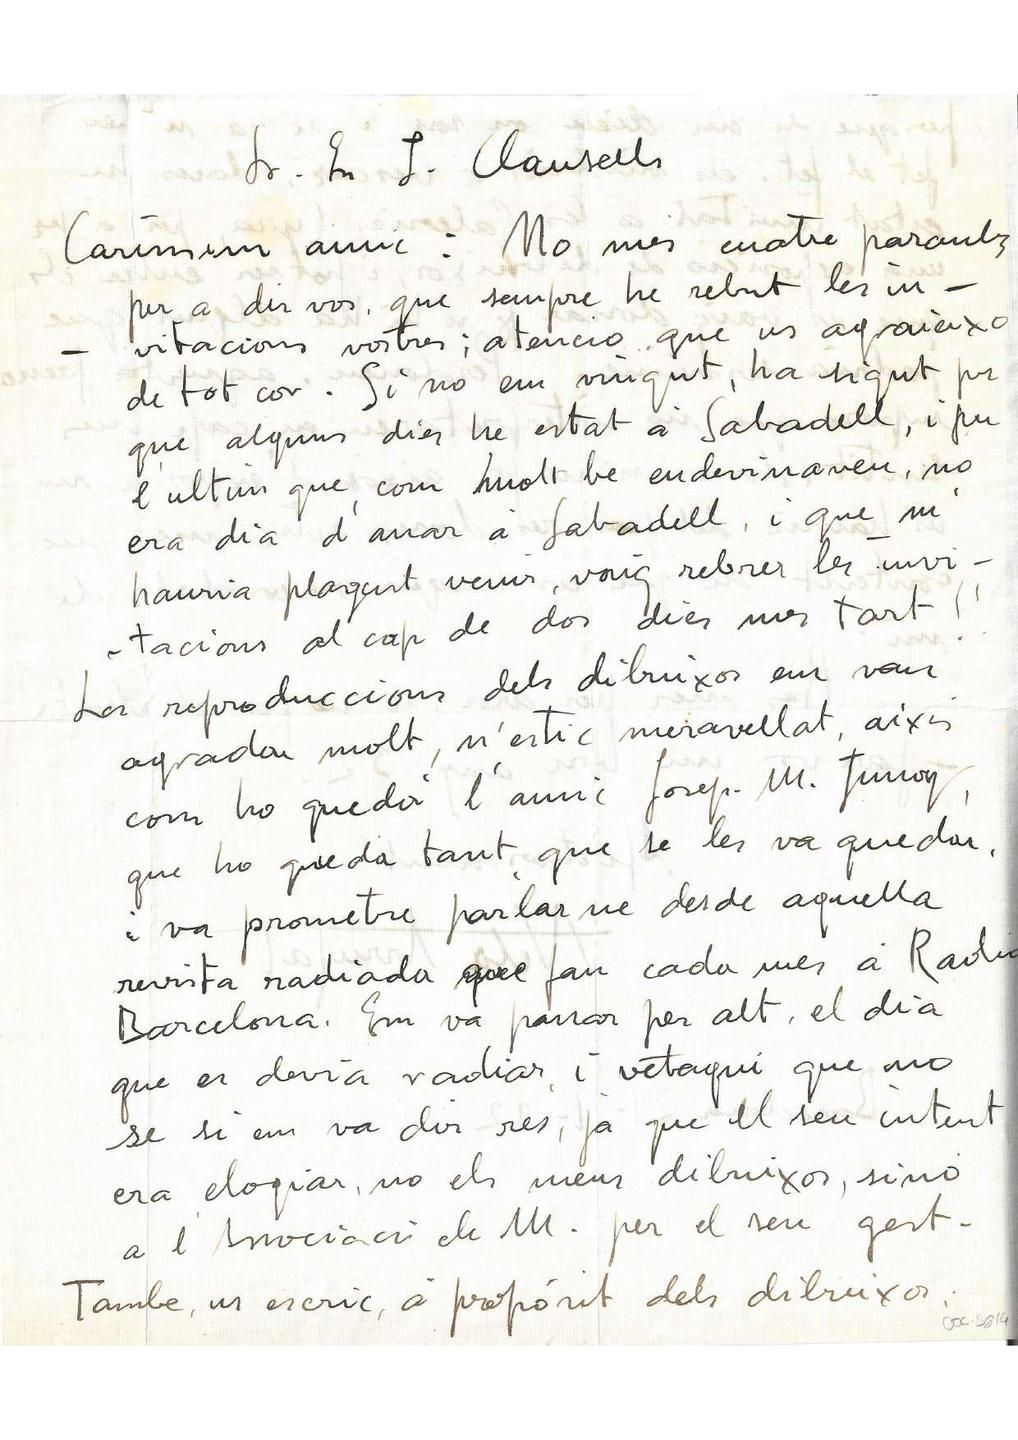 Sr. En J. Clausells
Caríssim amic: No mes cuatre paraules
per a dir vos, que sempre he rebut les in-
- vitacions vostres; atencio que us agraieixo
de tot cor. Si no em vingut, ha sigut per
que alguns dies he estat à Sabadell, i per
l'ultim que, com molt be endevinaveu, no
era dia d'anar à Sabadell, i que m'
hauria plagut venir, vaig rebrer les invi-
-tacions al cap de dos dies mes tart!!
Les reproduccions dels dibuixos em van
agradar molt, n'estic meravellat, aixis
com ho quedà l'amic Josep. M. Junoy,
que ho queda tant, que se les va quedar,
i va prometre parlarne desde aquella
revista radiada que fan cada mes à Radio
Barcelona. Em va passar per alt, el dia
que es devia radiar, i vetaqui que no
se si em va dir res, jà que el seu intent
era elogiar, no els meus dibuixos, sinó
a l'Associació de M. per el seu gest-
Tambe, us escric, à propósit dels dibuixos,
DOC-3814